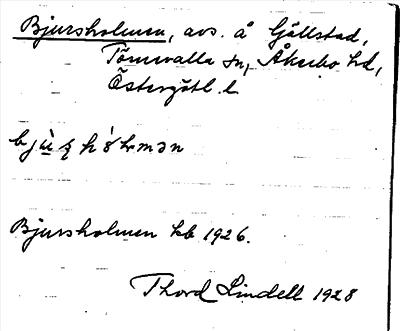 Bjursholmen, avs. å Gällstad,
Törnevalla sn, Åkerbo hd,
Östergötl. l.
Bjursholmen kb 1926.
Thord Lindell 1928